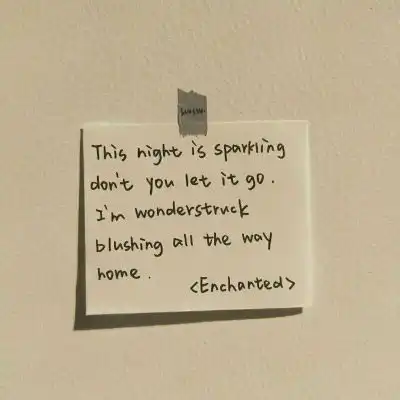 This night is sparkling
don't you let it go.
I'm wonderstruck
blushing all the way
home.
<Enchanted>